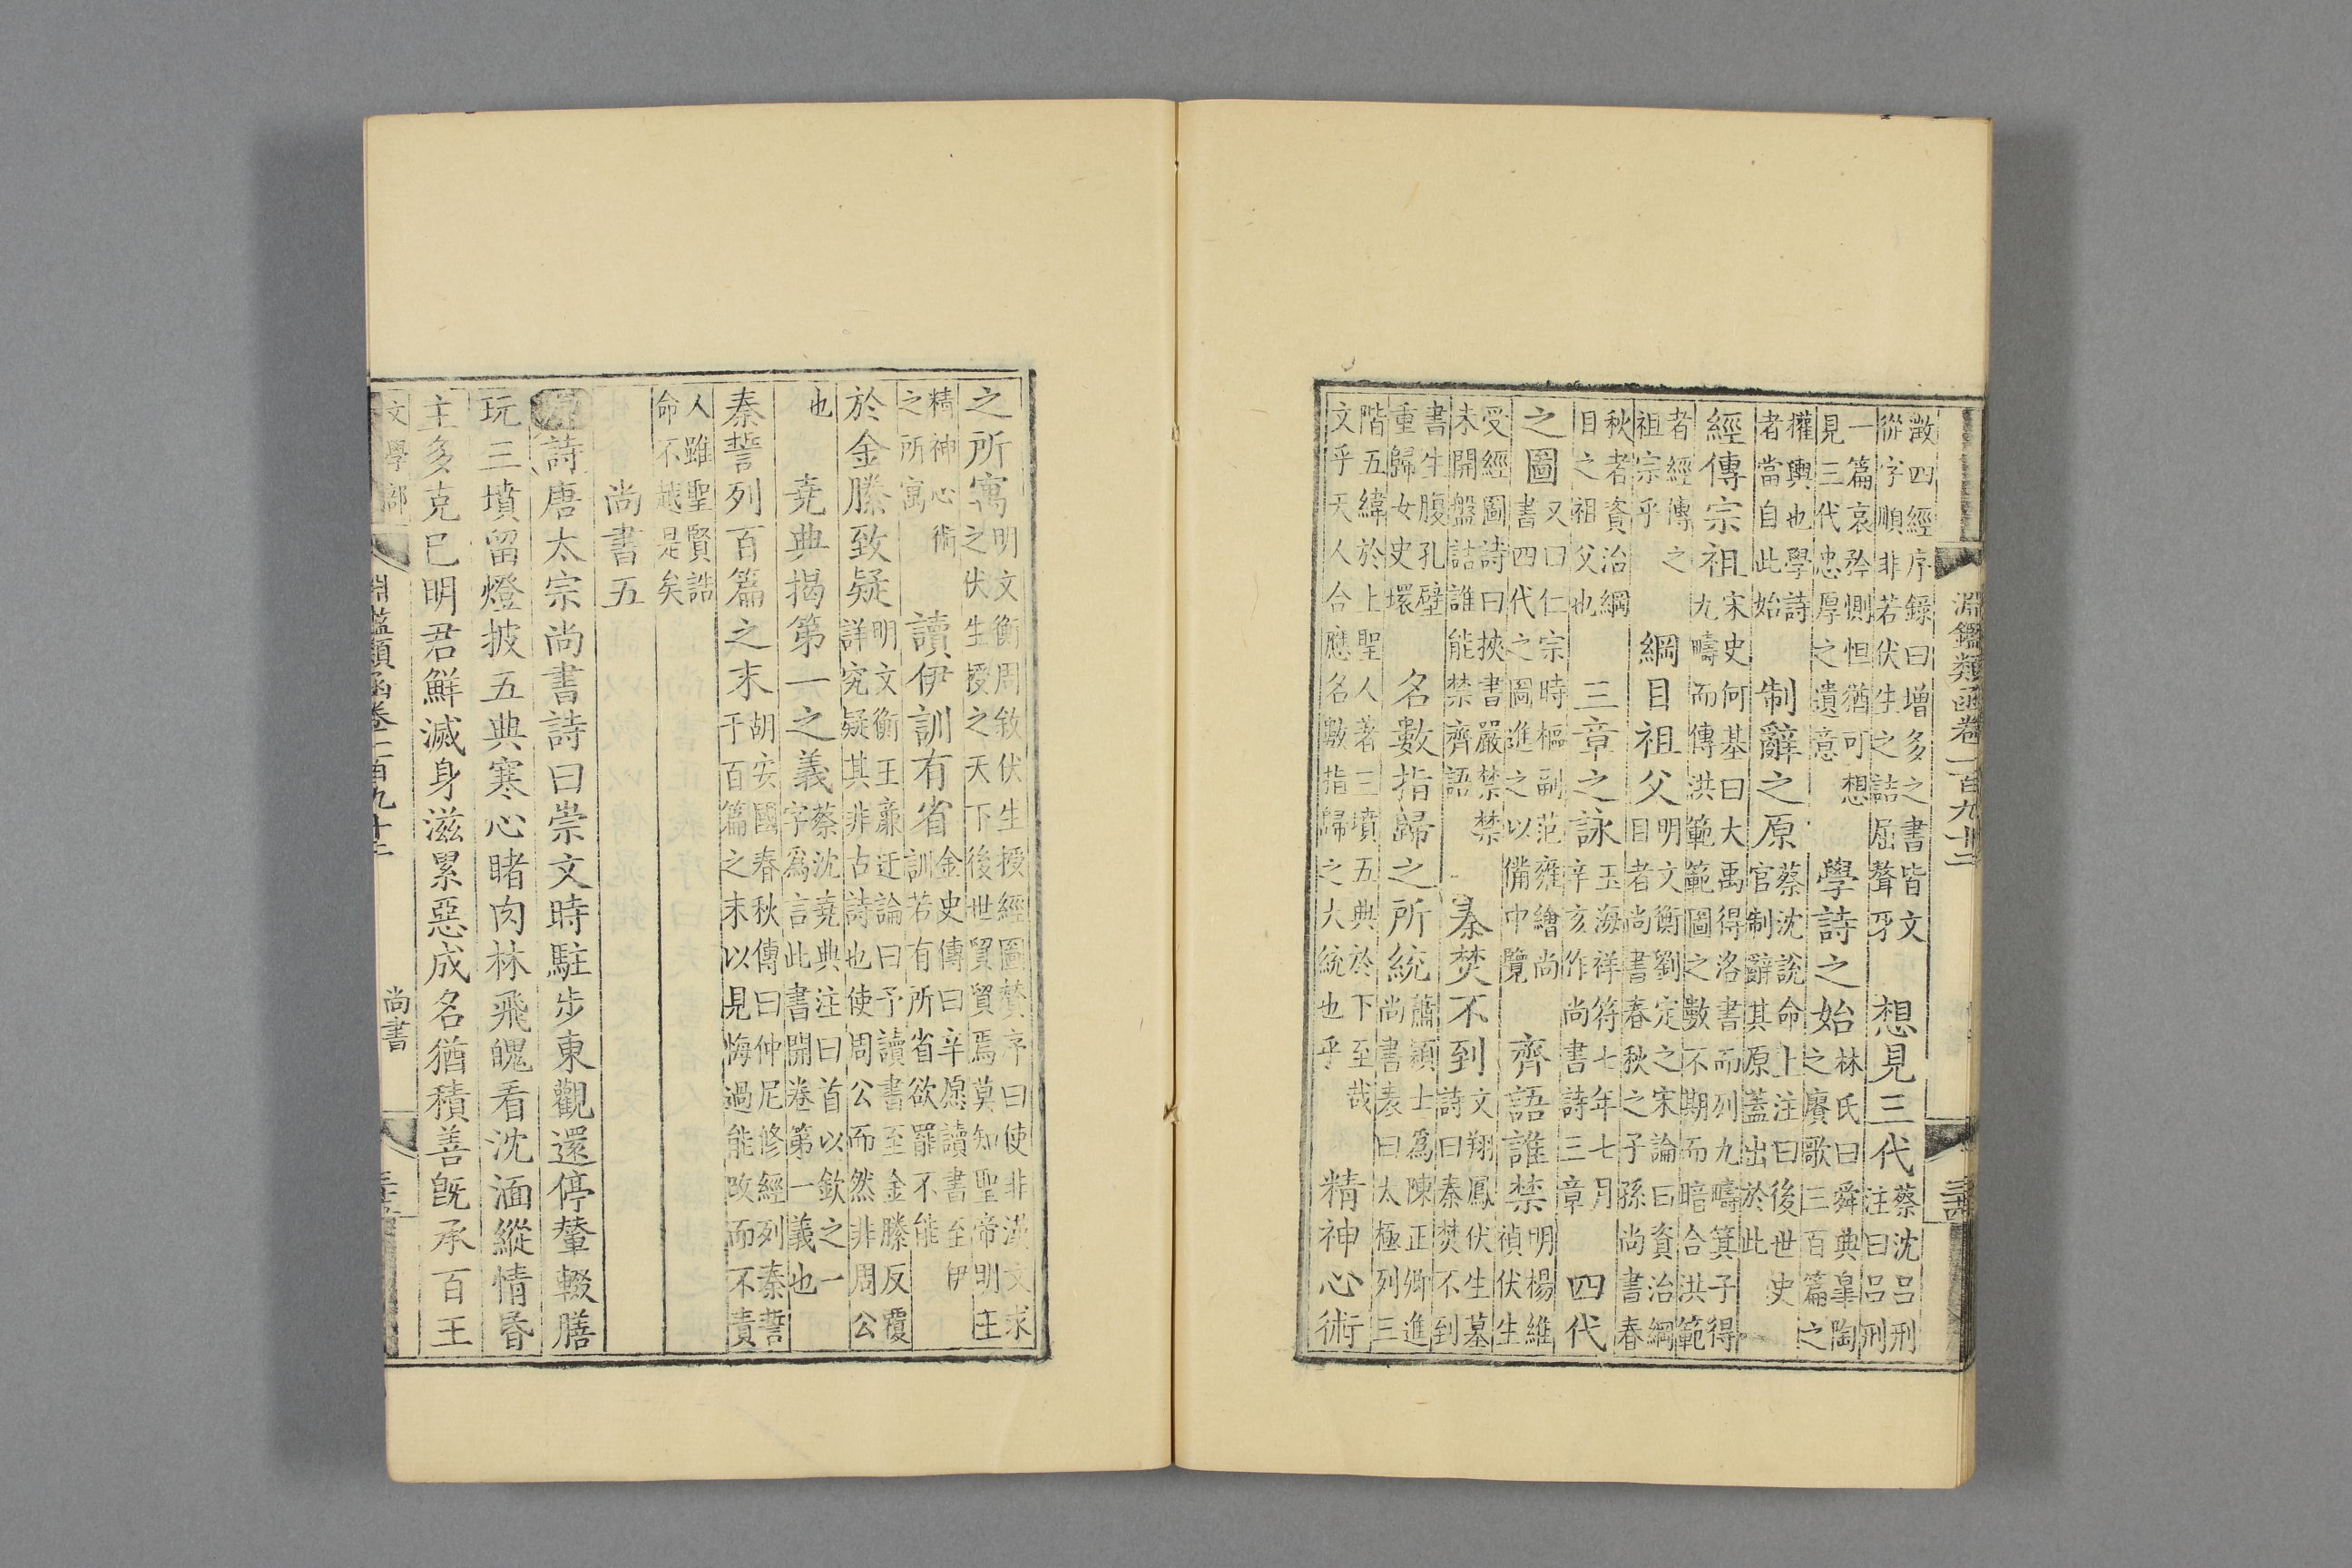 淵鑑類函卷一百九十二 三十四
澂四經序錄曰增多之書皆文
從字順非若伏生之詰屈聱牙
想見三代
蔡沈呂刑
注曰呂刑
一篇哀矜惻怛猶可想
見三代忠厚之遺意
學詩之始
林氏曰舜典皐陶
之賡歌三百篇之
權輿也學詩
者當自此始
制辭之原
蔡沈說命上注曰後世史
官制辭其原蓋出於此
經傳宗祖
宋史何基曰大禹得洛書而列九疇箕子得
九疇而傳洪範範圖之數不期而暗合洪範
者經傳之
祖宗乎
綱目祖父
明文衡劉定之宋論曰資治綱
目者尚書春秋之子孫尚書春
秋者資治綱
目之祖父也
三章之詠
玉海祥符七年七月
辛亥作尚書詩三章
四代
之圖
又曰仁宗時樞副范雍繪尚
書四代之圖進之以備中覽
齊語誰禁
明楊維
禎伏生
受經圖詩曰挾書嚴禁禁
未開盤詰誰能禁齊語
秦焚不到
文翔鳳伏生墓
詩曰秦焚不到
書生腹孔壁
重歸女史環
名數指歸之所統
蕭穎士爲陳正卿進
尚書表曰太極列三
階五緯於上聖人著三墳五典於下至哉
文乎天人合應名數指歸之大統也乎
精神心術
之所寓
明文衡周敘伏生授經圖贊序曰使非漢文求
之伏生授之天下後世貿貿焉莫知聖帝明主
精神心術
之所寓
讀伊訓有省
金史傳曰辛愿讀書至伊
訓若有所省欲罷不能
於金縢致疑
明文衡王廉迂論曰予讀書至金縢反覆
詳究疑其非古詩也使周公而然非周公
也
堯典揭第一之義
蔡沈堯典注曰首以欽之一
字爲言此書開卷第一義也
秦誓列百篇之末
胡安國春秋傳曰仲尼修經列秦誓
于百篇之末以見悔過能改而不責
人雖聖賢誥
命不越是矣
尚書五
詩唐太宗尚書詩曰崇文時駐步東觀還停輦輟膳
玩三墳留燈披五典寒心睹肉林飛魄看沈湎縱情昏
主多克已明君鮮滅身滋累惡成名猶積善旣承百王
文學部 淵鑑類函卷一百九十二 尚書